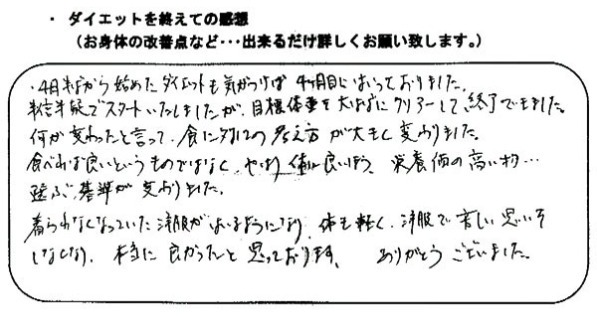 ・ダイエットを終えての感想
（お身体の改善点など・・・出来るだけ詳しくお願い致します。）
・4月半ばから始めたダイエットも気がつけば4ヶ月目にはいっておりました。
半信半疑でスタートいたしましたが、目標体重を大はばにクリアーして、終了できました。
何が変わったと言って、食に対しての考え方が大きく変わりました。
食べれば良いというものではなく、やはり体に良いもの、栄養価の高い物…
選ぶ基準が変わりました。
着られなくなっていた洋服がはいるようになり、体も軽く、洋服で苦しい思いも
しなくなり、本当に良かったと思っております。ありがとうございました。